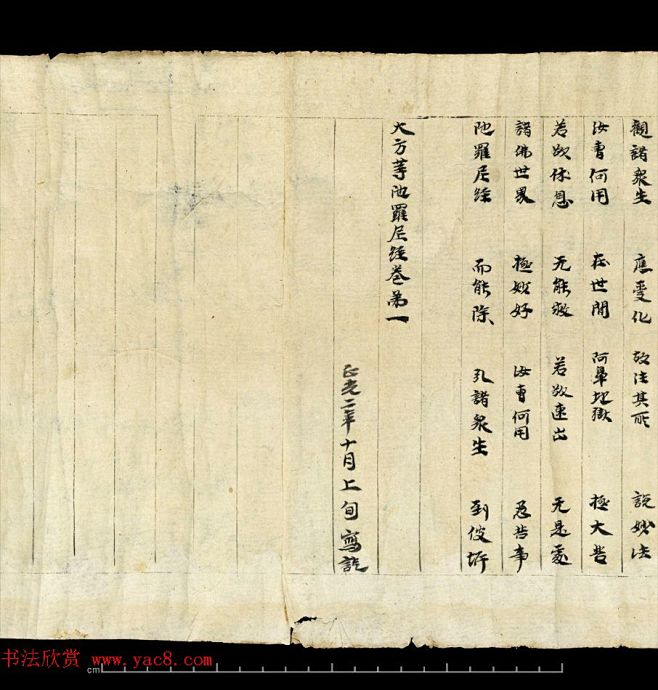 觀諸衆生 應變化 故注其所 說妙法
汝曹何用 在世間 阿鼻地獄 極大苦
若欲休息 无能救 若欲速出 无是處
諸佛世界 極妙好 汝曹何用 忍苦事
陁羅尼經 而能除 孔諸衆生 到彼㟁
大方等陁羅尼經卷第一
正光二年十月上旬寫訖
书法欣赏 www.yac8.com
cm